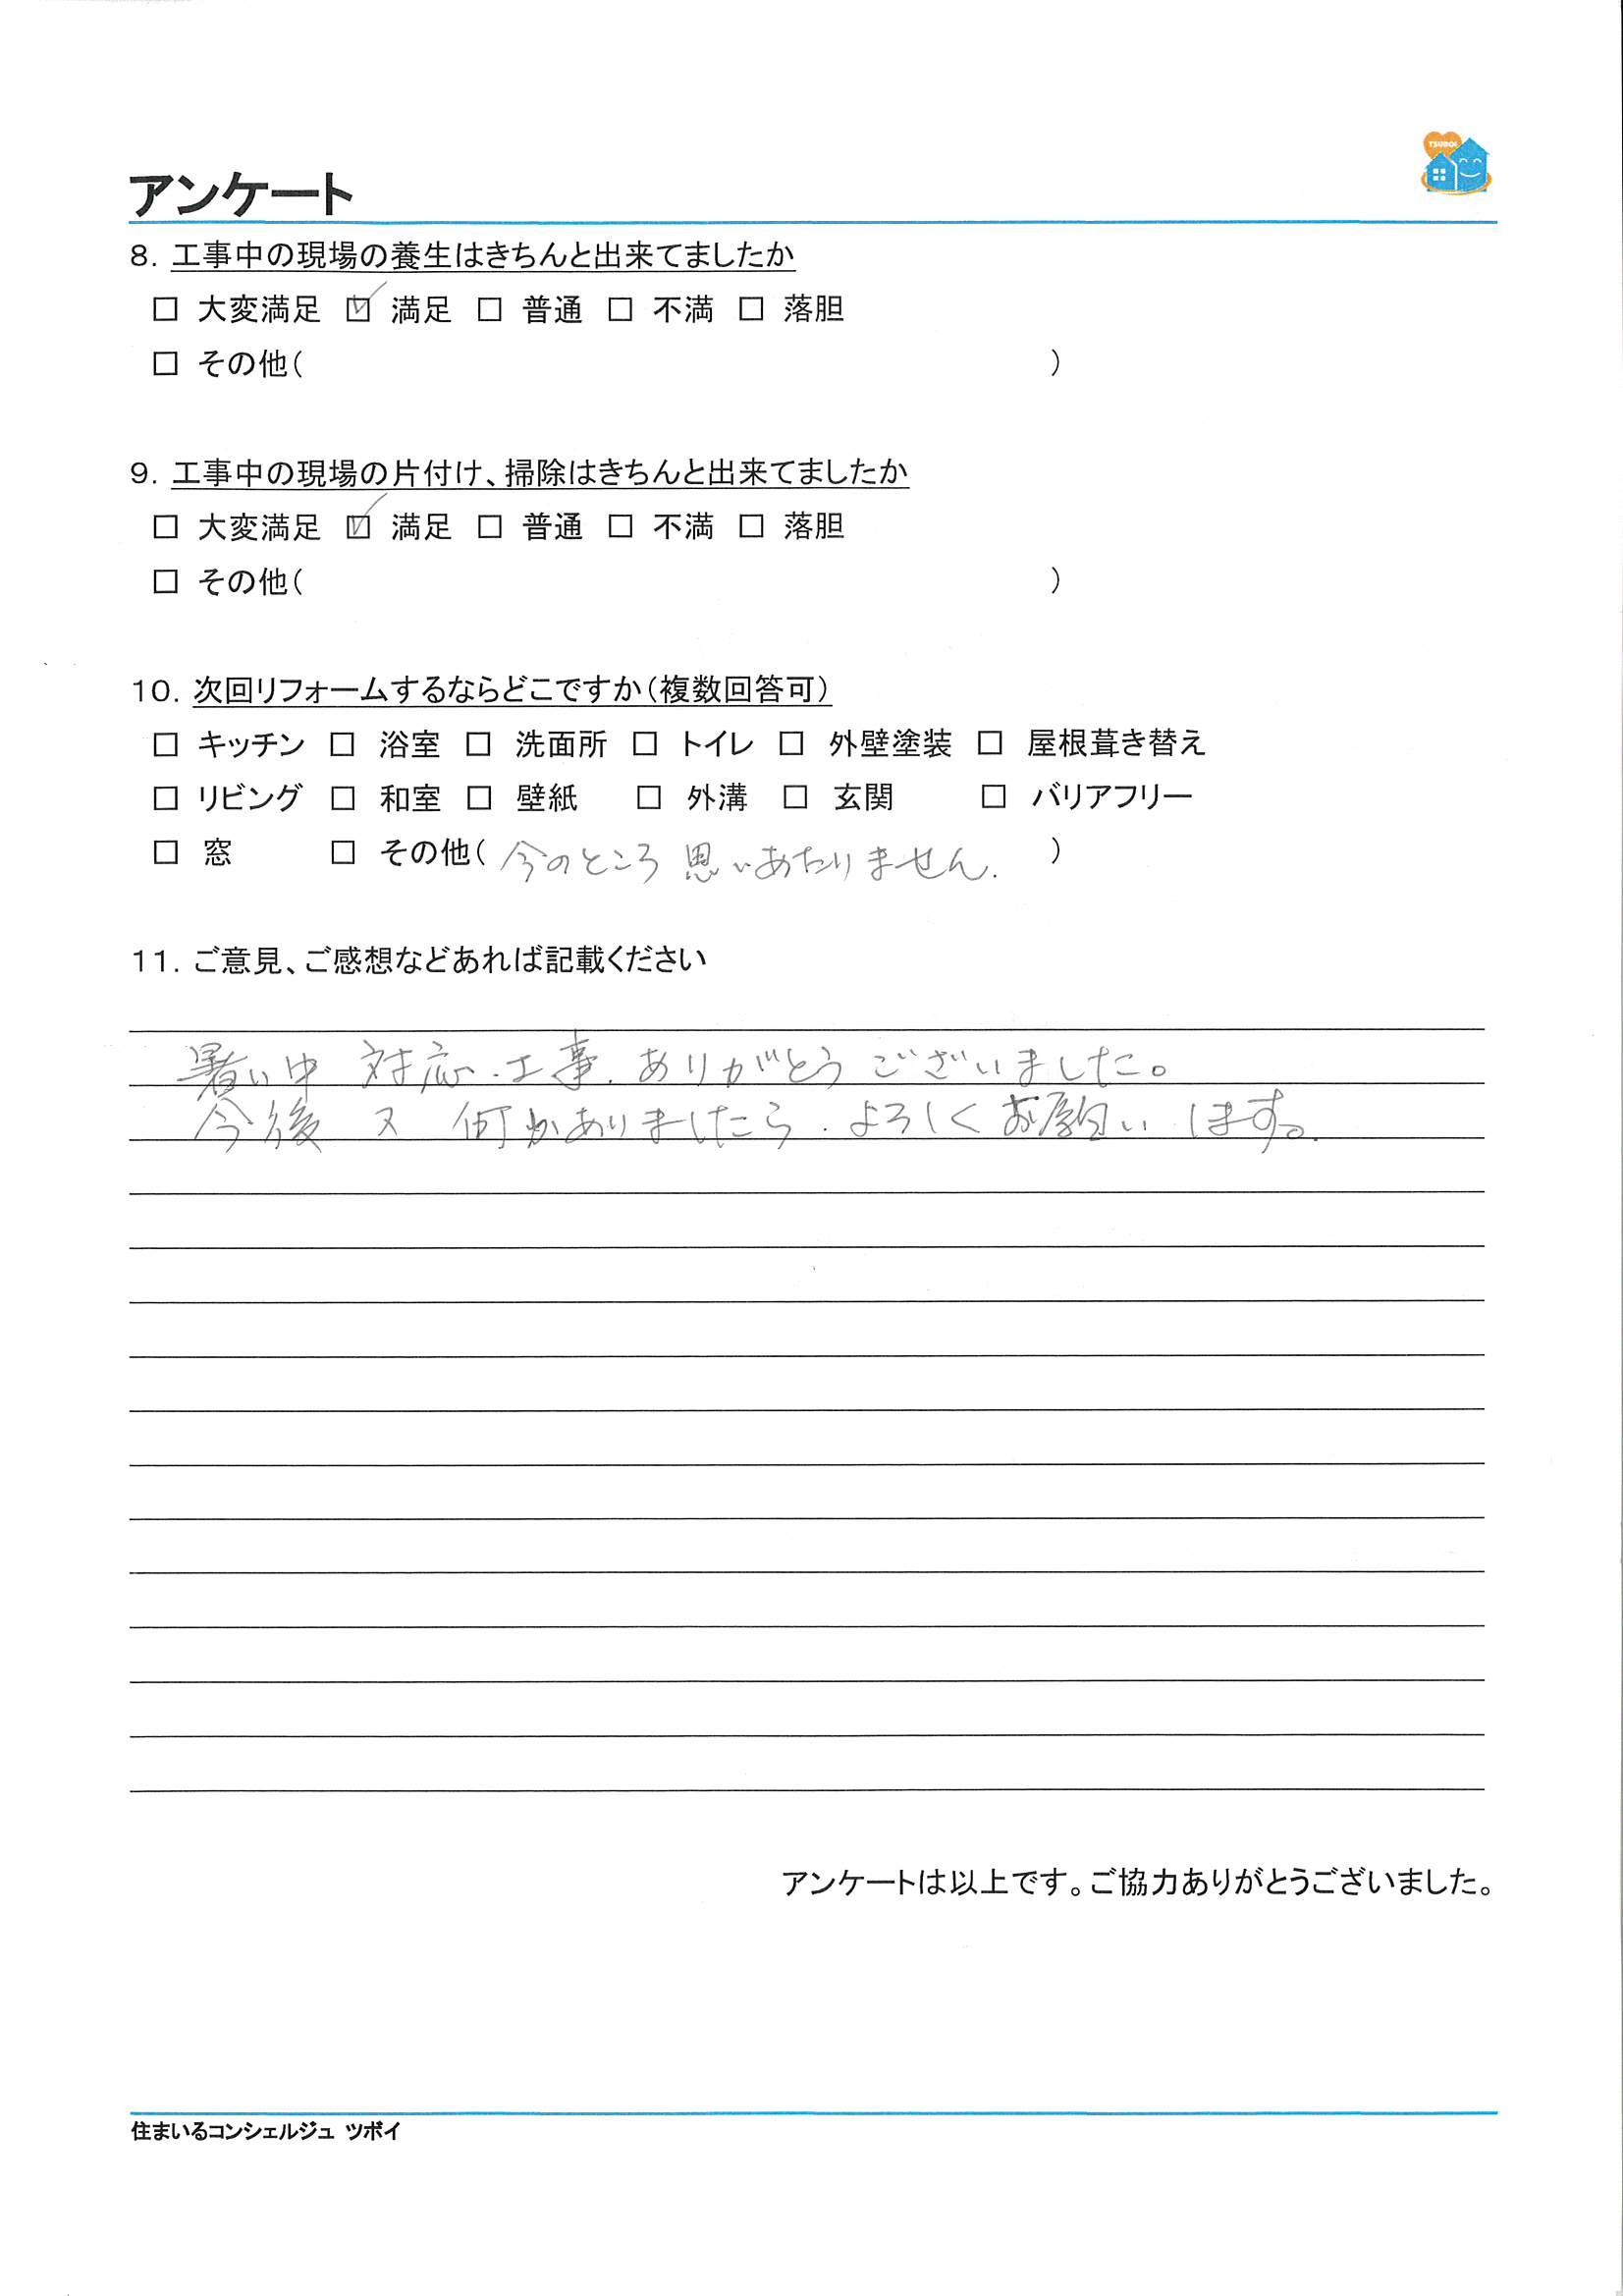 TSUBOI
アンケート
8. 工事中の現場の養生はきちんと出来てましたか
□ 大変満足 ☑ 満足 □ 普通 □ 不満 □ 落胆
□ その他( )
9. 工事中の現場の片付け、掃除はきちんと出来てましたか
□ 大変満足 ☑ 満足 □ 普通 □ 不満 □ 落胆
□ その他( )
10. 次回リフォームするならどこですか(複数回答可)
□ キッチン □ 浴室 □ 洗面所 □ トイレ □ 外壁塗装 □ 屋根葺き替え
□ リビング □ 和室 □ 壁紙 □ 外溝 □ 玄関 □ バリアフリー
□ 窓 □ その他( 今のところ 思いあたりません. )
11. ご意見、ご感想などあれば記載ください
暑い中 対応.工事.ありがとうございました。
今後 又 何かありましたら.よろしくお願い します。
アンケートは以上です。ご協力ありがとうございました。
住まいるコンシェルジュ ツボイ